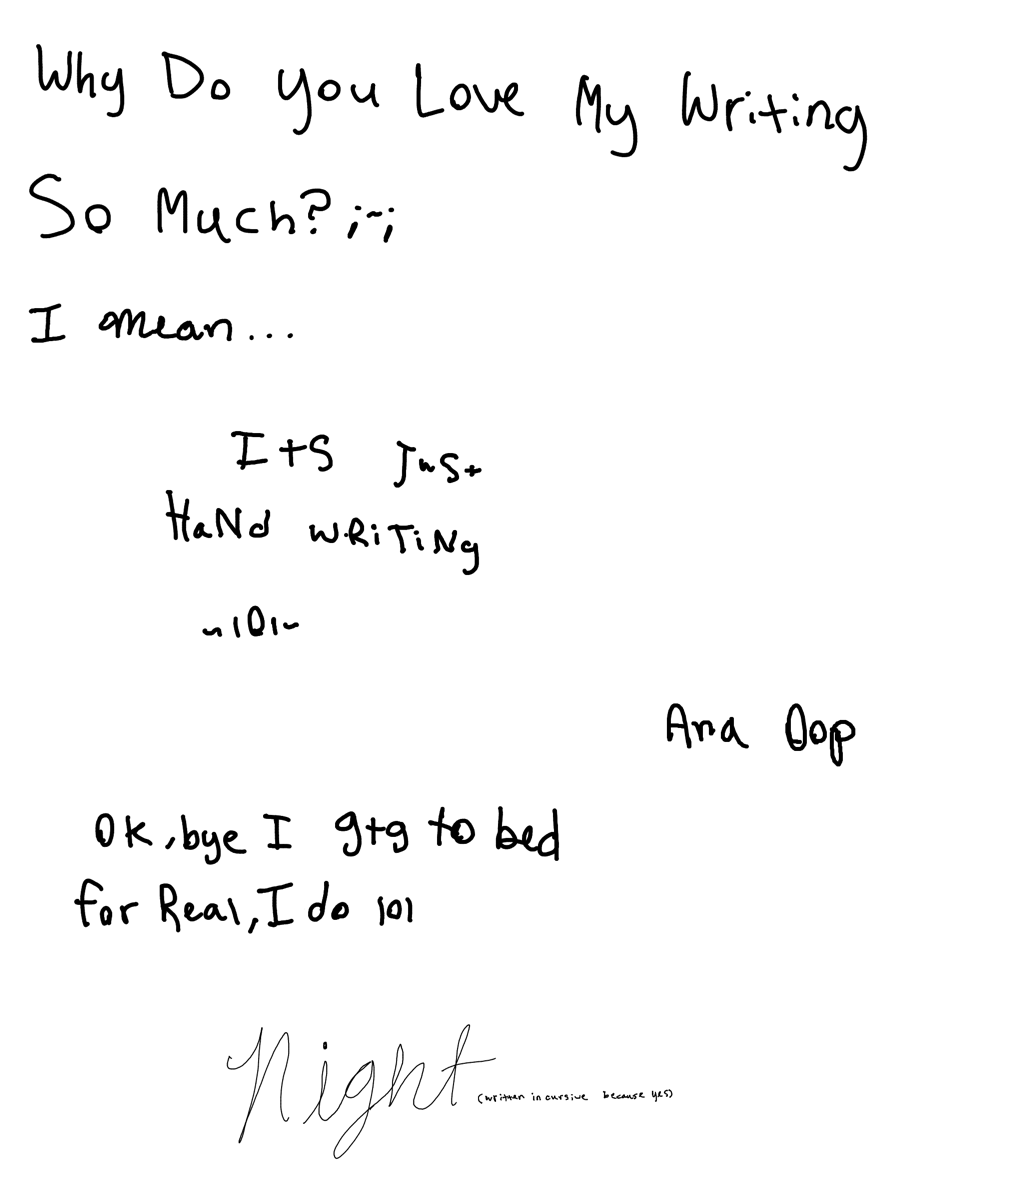 Why Do you Love My Writing
So Much? ;~;
I mean...
Its Just
HaNd WRiTiNg
~lOl~
Ana Oop
Ok, bye I gtg to bed
for Real, I do lol
Night (written in cursive because yes)